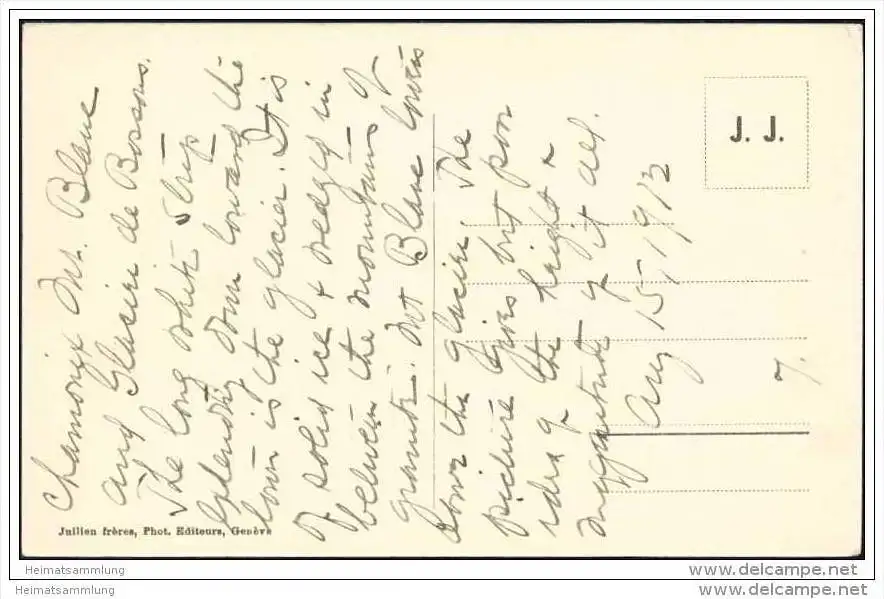 Chamonix Mt. Blanc
and Glacier de Bossons.
The long white strip
extending down toward the
town is the glacier. It is
of solid ice & wedged in
between the mountains of
granite. Mt Blanc towers
down the glacier. The
picture gives but poor
idea of the height &
magnitude of it all.
Aug 15, 1913
7.
J. J.
Jullien frères, Phot. Editeurs, Genève
Heimatsammlung
Heimatsammlung
www.delcampe.net
www.delcampe.net